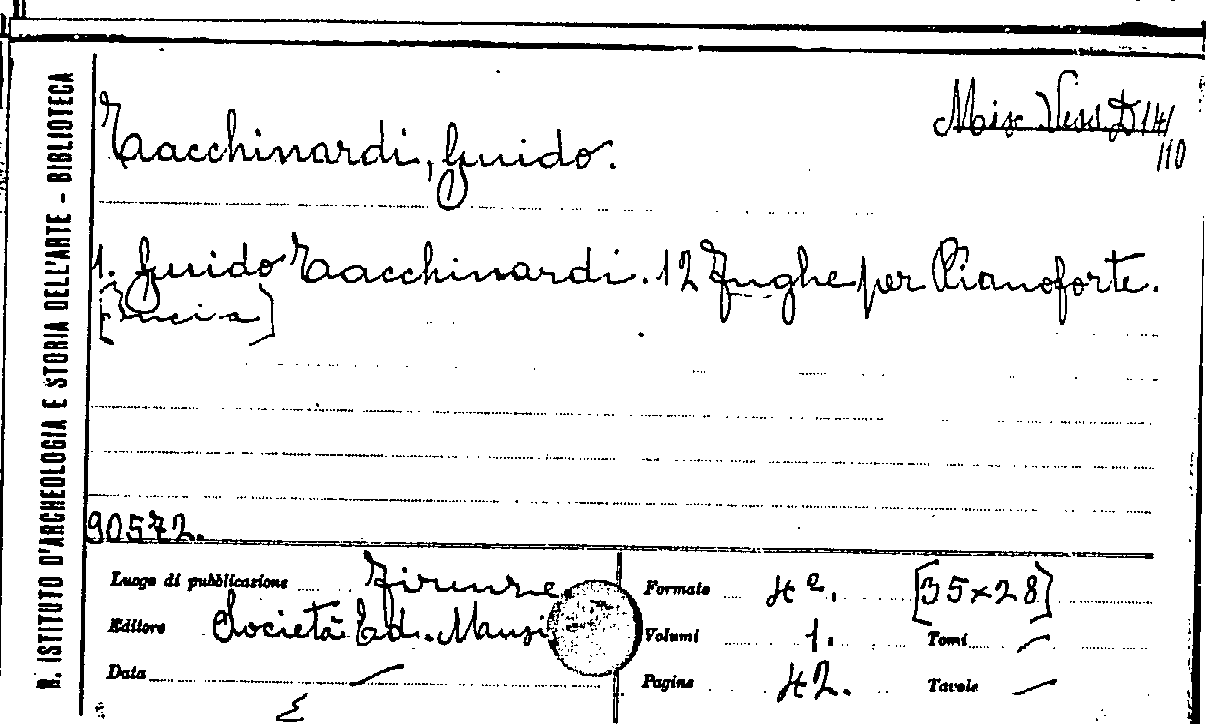 R. ISTITUTO D'ARCHEOLOGIA E STORIA DELL'ARTE - BIBLIOTECA
Misc Vess D 14/
110
Tacchinardi, Guido.
1. Guido Tacchinardi. 12 Fughe per Pianoforte.
90572.
Luogo di pubblicazione Firenze
Editore Società Ed. Mausi
Data —
Formato 4º. [35×28]
Volumi 1. Tomi —
Pagine 42. Tavole —